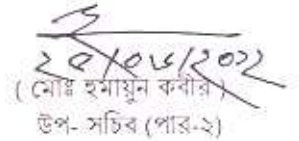 ২৫/০৮/২০২২
( মোঃ হুমায়ুন কবীর )
উপ- সচিব (পার-২)